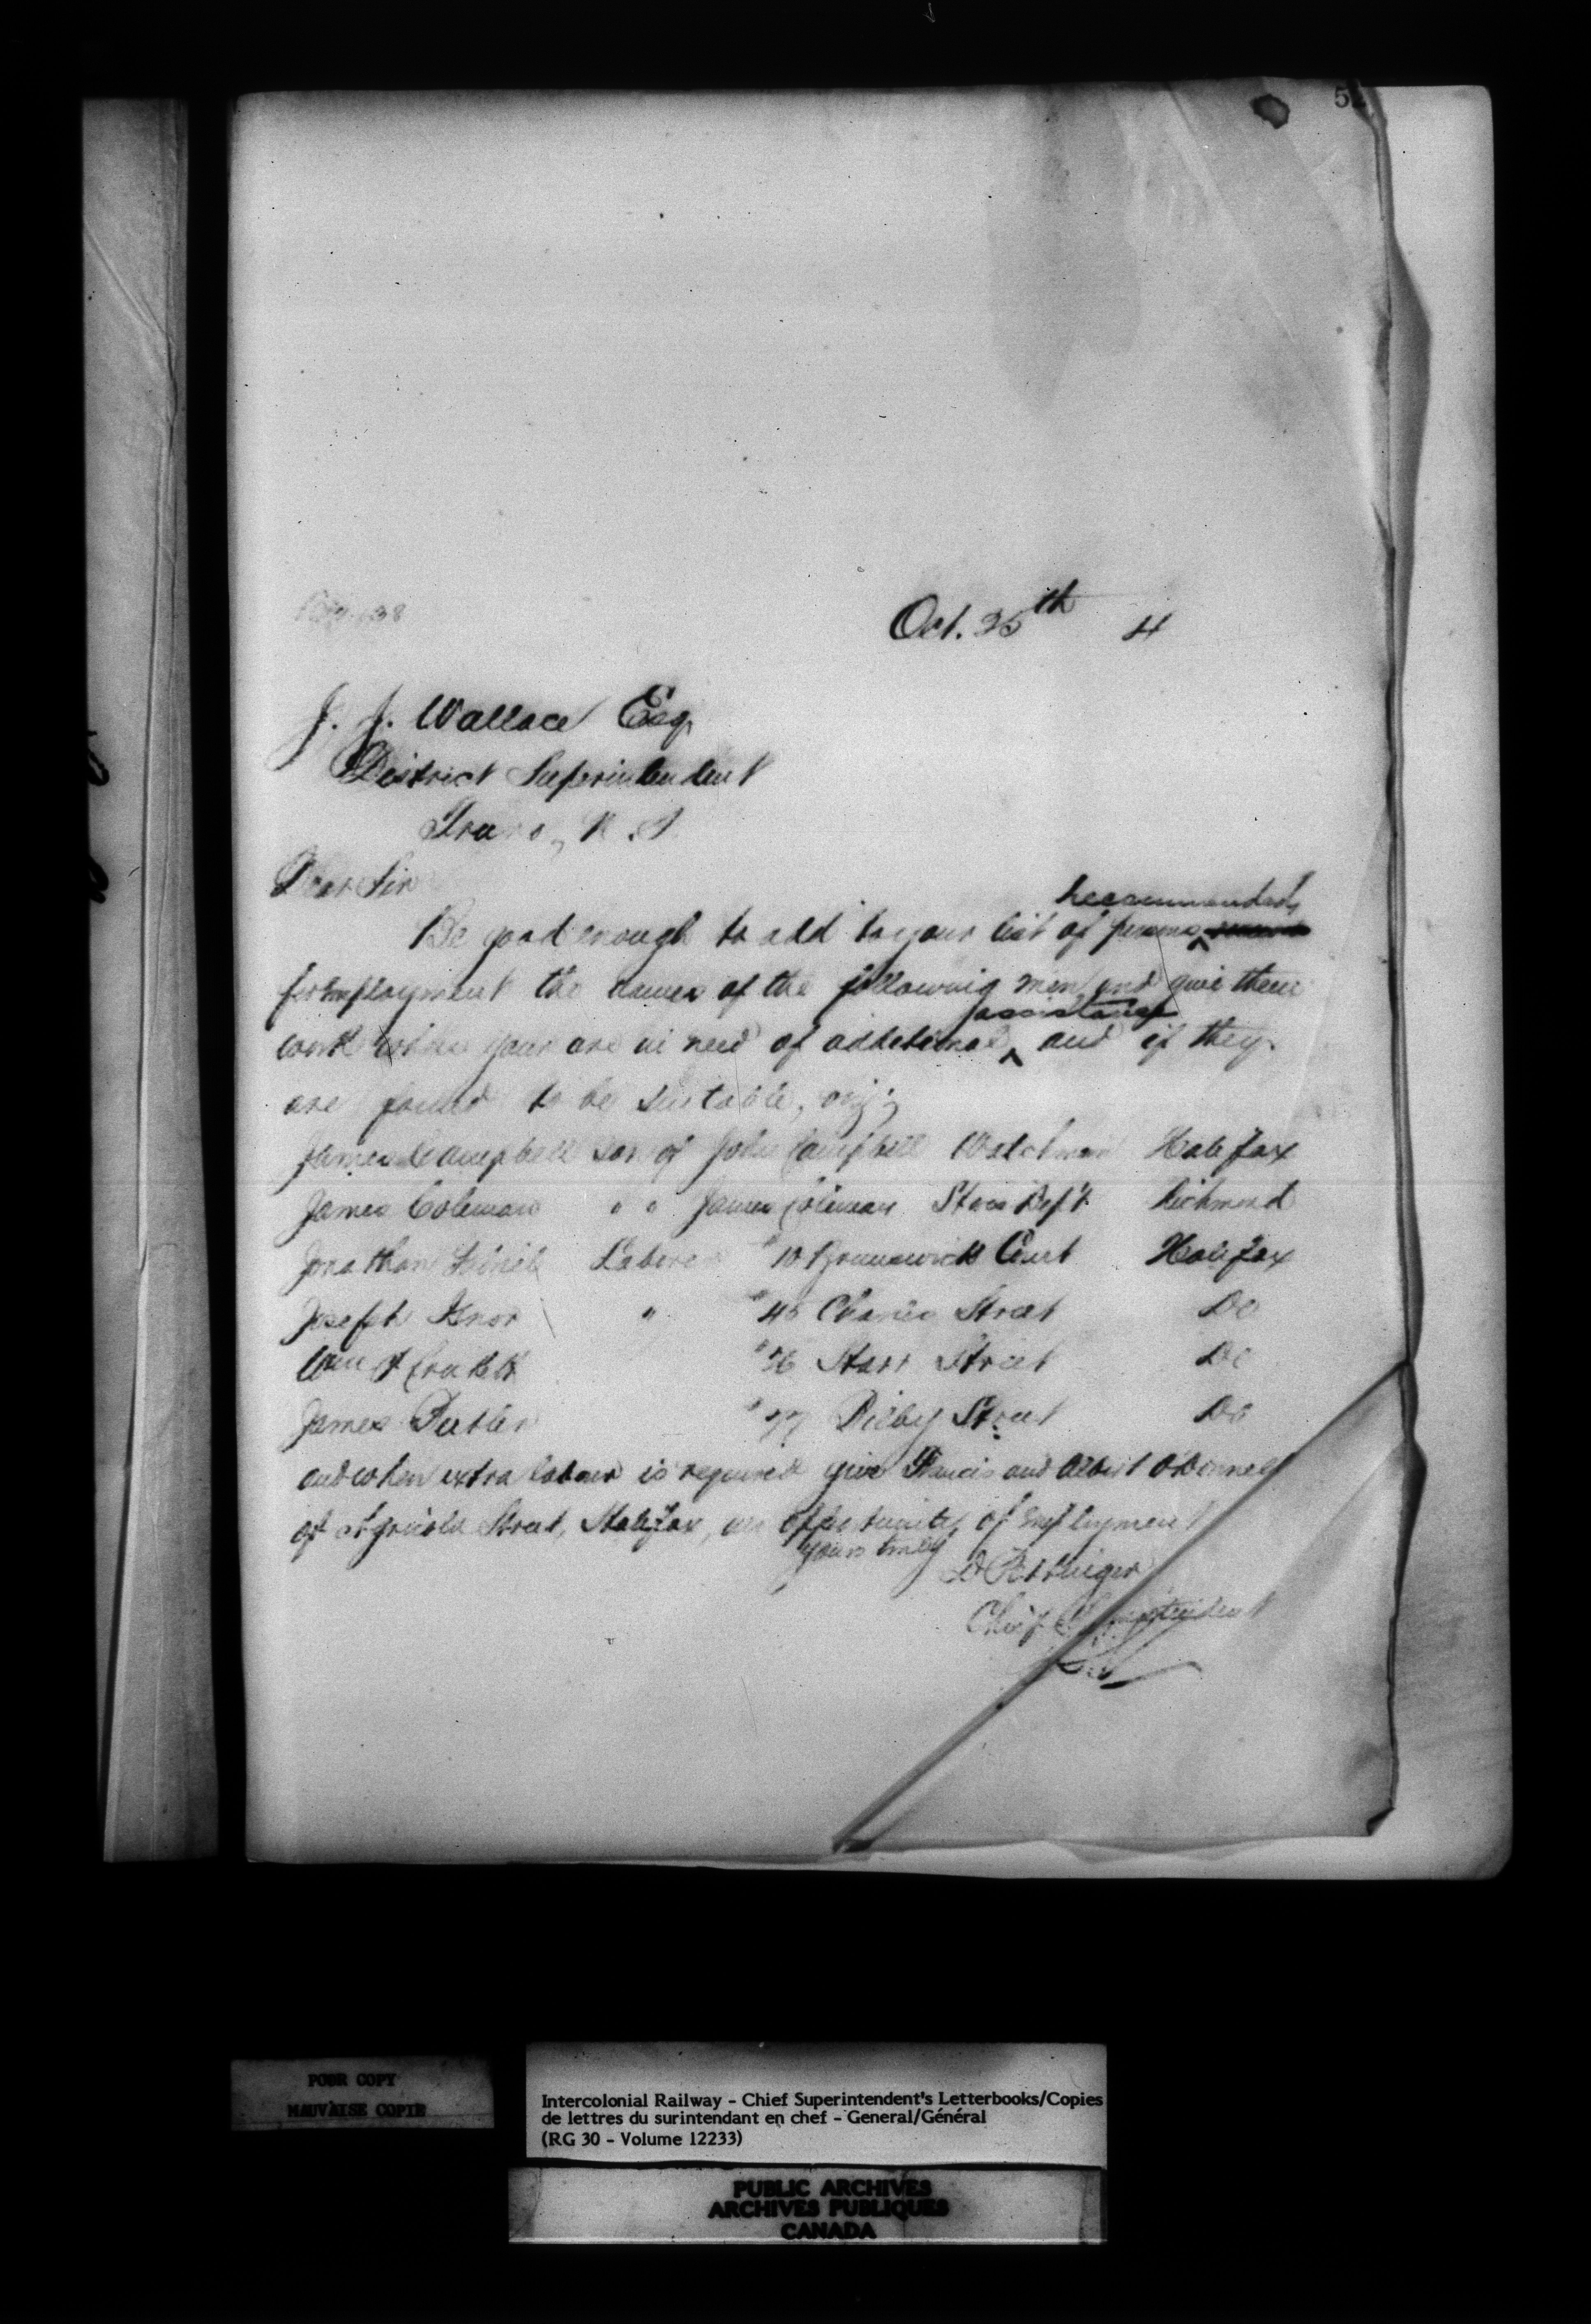 5
Oct. 25th 4
J. J. Wallace Esq
District Superintendent
Truro, N.S.
Dear Sir
recommended
Be good enough to add to your list of persons
for Employment the names of the following men and give them
assistance
work when your are in need of additional, and if they
are found to be suitable, viz;
James Campbell son of John Campbell Watchman Halifax
James Coleman " " James Coleman Stores Dep't Richmond
Jonathan Laborer " 10 Brunswick Court Halifax
Joseph Knox " " 45 Charles Street Do
" 26 Starr Street Do
James " 77 Bilby Street Do
and when extra labour is required give Francis and Albert O'Donnell
of Agricola Street, Halifax, an opportunity of Employment
Yours truly
D Pottinger
Chief Superintendent
POOR COPY
MAUVAISE COPIE
Intercolonial Railway - Chief Superintendent's Letterbooks/Copies
de lettres du surintendant en chef - General/Général
(RG 30 - Volume 12233)
PUBLIC ARCHIVES
ARCHIVES PUBLIQUES
CANADA